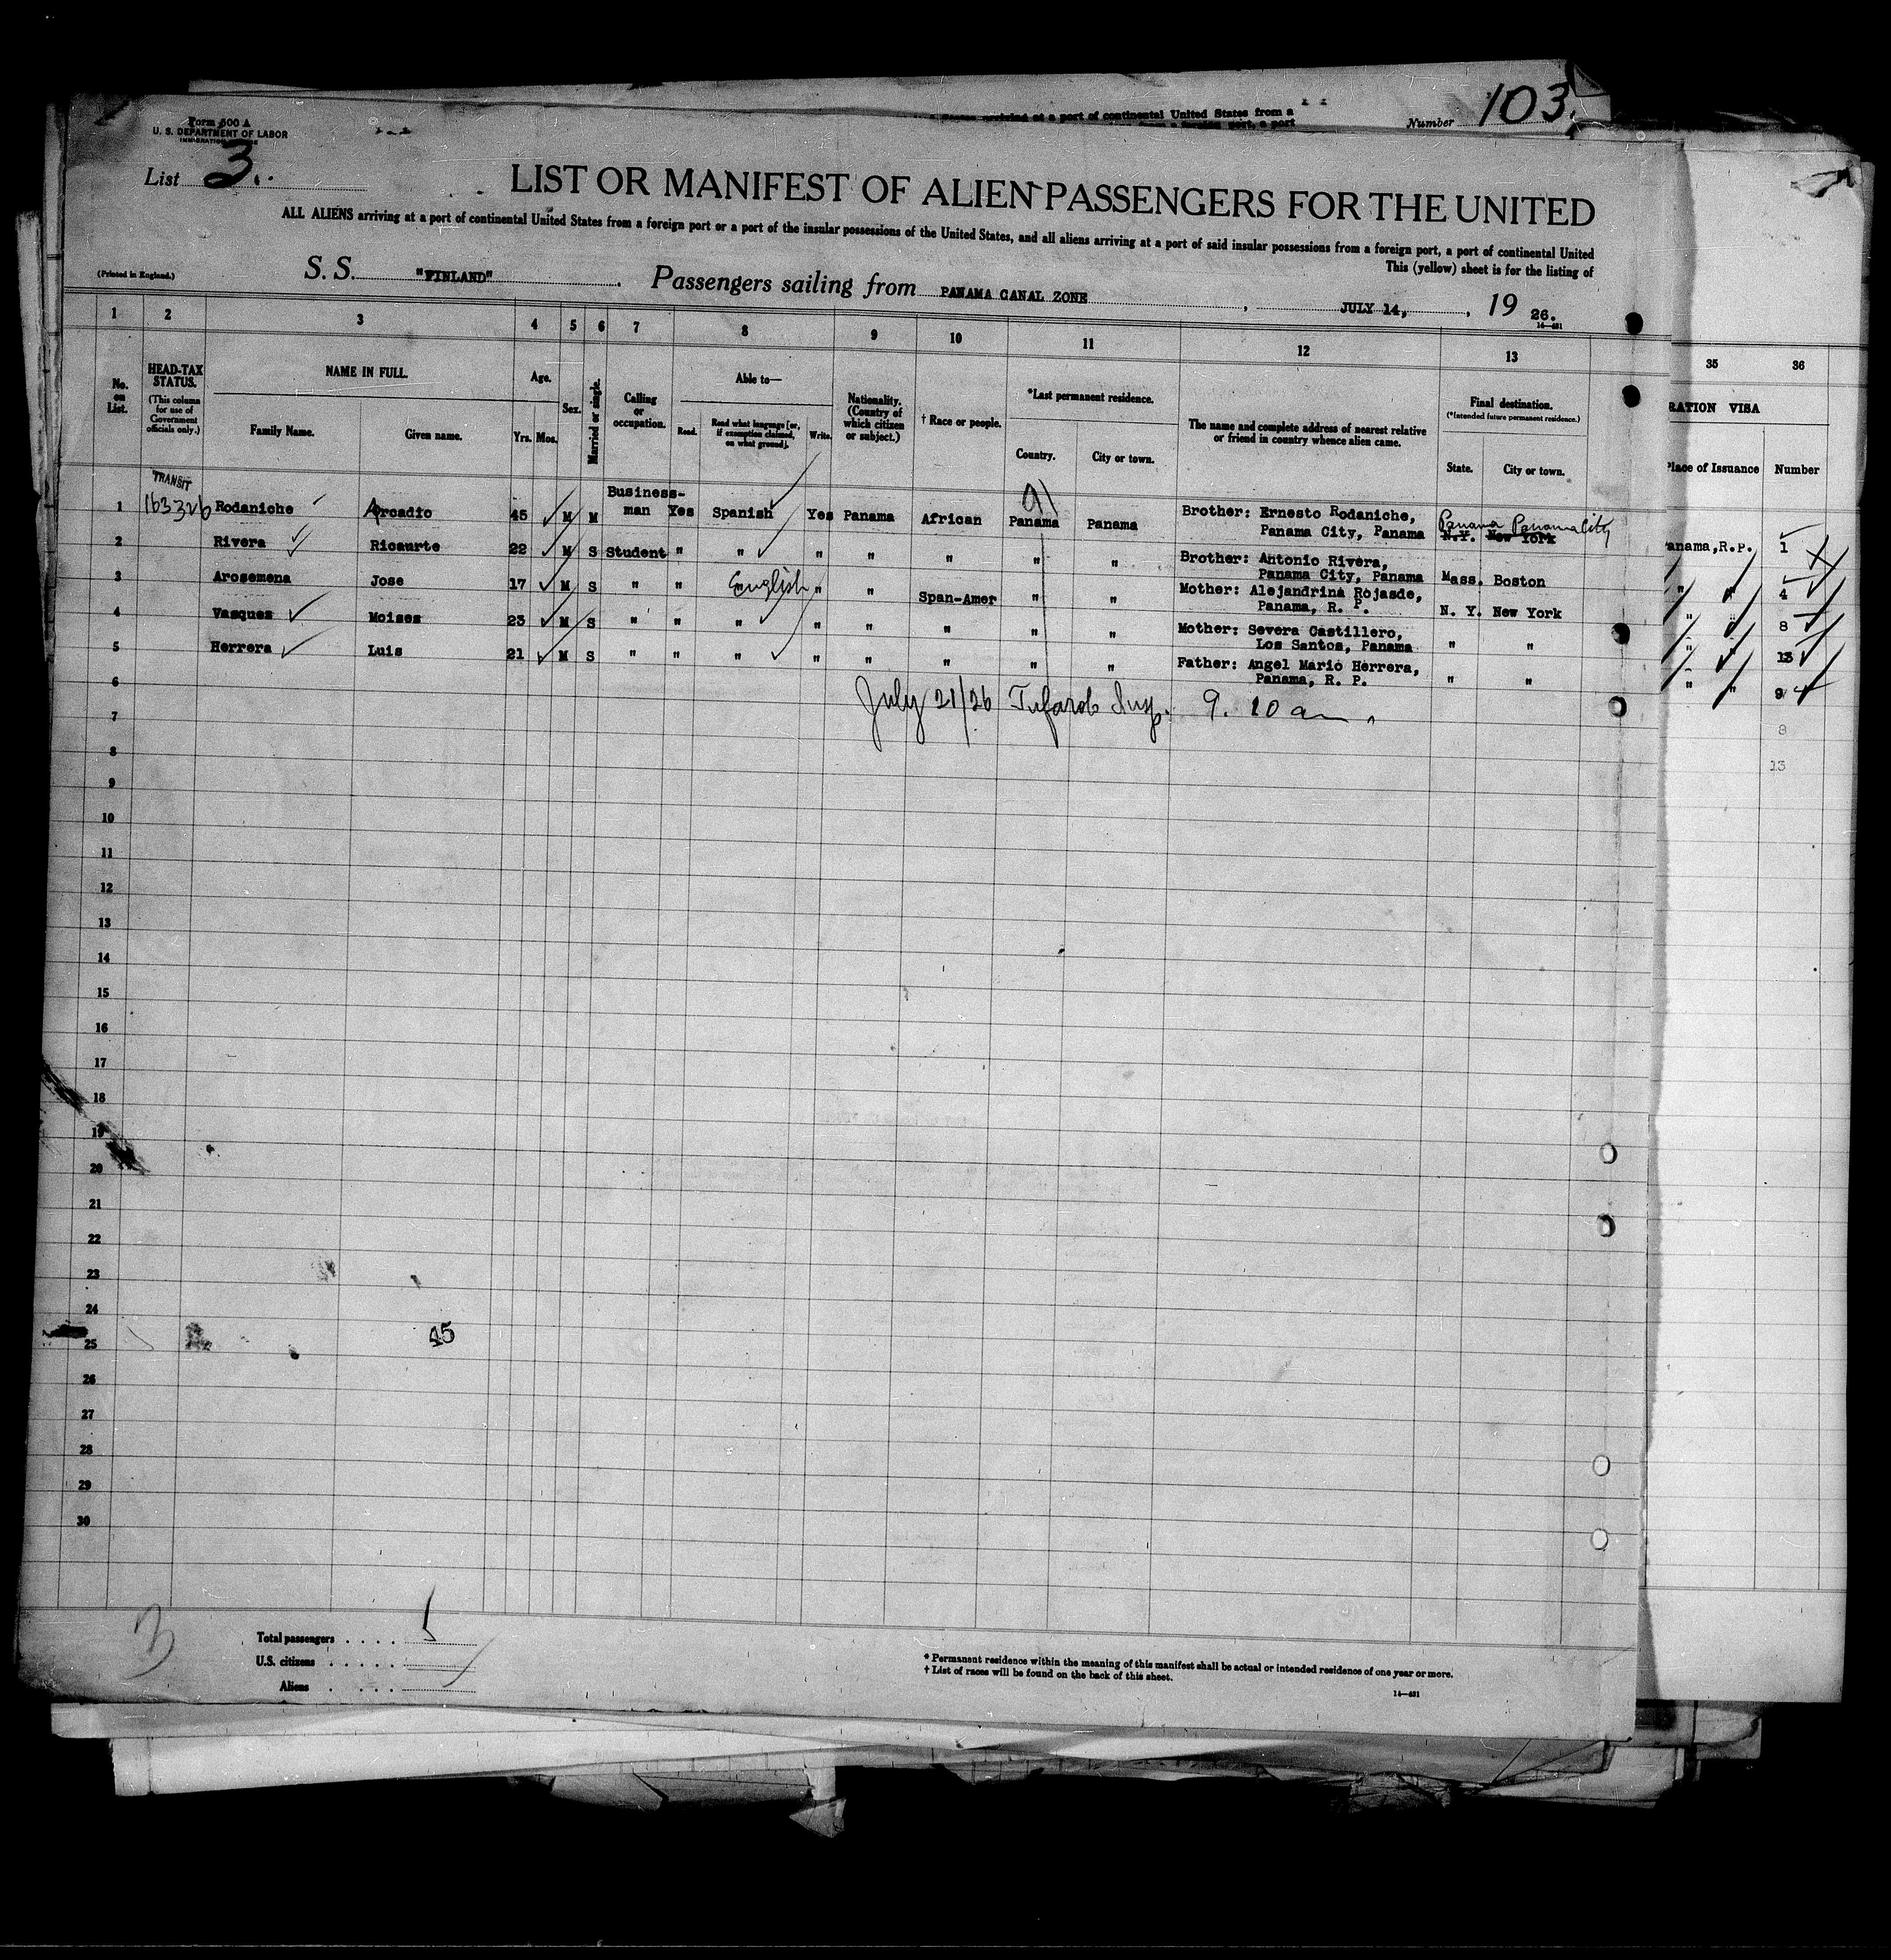 arriving at a port of continental United States from a
from a foreign port, a port
Number 103.
Form 500 A
U. S. DEPARTMENT OF LABOR
List 3.
LIST OR MANIFEST OF ALIEN PASSENGERS FOR THE UNITED
ALL ALIENS arriving at a port of continental United States from a foreign port or a port of the insular possessions of the United States, and all aliens arriving at a port of said insular possessions from a foreign port, a port of continental United
This (yellow) sheet is for the listing of
(Printed in England.)
S. S. "FINLAND" Passengers sailing from PANAMA CANAL ZONE, JULY 14, 1926.
1 2 3 4 5 6 7 8 9 10 11 12 13 35 36
No. on List.
HEAD-TAX STATUS.
(This column for use of Government officials only.)
NAME IN FULL.
Family Name. Given name.
Age.
Yrs. Mos.
Sex.
Married or single.
Calling or occupation.
Able to—
Read. Read what language [or, if exemption claimed, on what ground]. Write.
Nationality. (Country of which citizen or subject.)
† Race or people.
*Last permanent residence.
Country. City or town.
The name and complete address of nearest relative or friend in country whence alien came.
Final destination.
(*Intended future permanent residence.)
State. City or town.
RATION VISA
Place of Issuance Number
TRANSIT
1 163326 Rodaniche Arcadio 45 M M Business-man Yes Spanish Yes Panama African Panama Panama Brother: Ernesto Rodaniche, Panama City, Panama N.Y. New York Panama Panama City anama,R.P. 1
2 Rivera Ricaurte 22 M S Student " " " " " " " Brother: Antonio Rivera, Panama City, Panama Mass. Boston " " 4
3 Arosemena Jose 17 M S " " English " " Span-Amer " " Mother: Alejandrina Rojasde, Panama, R. P. N. Y. New York " " 8
4 Vasquez Moises 23 M S " " " " " " " " Mother: Severa Castillero, Los Santos, Panama " " " " 13
5 Herrera Luis 21 M S " " " " " " " " Father: Angel Mario Herrera, Panama, R. P. " " " " 9
6
July 21/26 Insp. 9.10 am.
7
8
13
8
9
10
11
12
13
14
15
16
17
18
19
20
21
22
23
24
45
25
26
27
28
29
30
3
Total passengers . . . . 5
U.S. citizens . . . . .
Aliens . . . .
* Permanent residence within the meaning of this manifest shall be actual or intended residence of one year or more.
† List of races will be found on the back of this sheet.